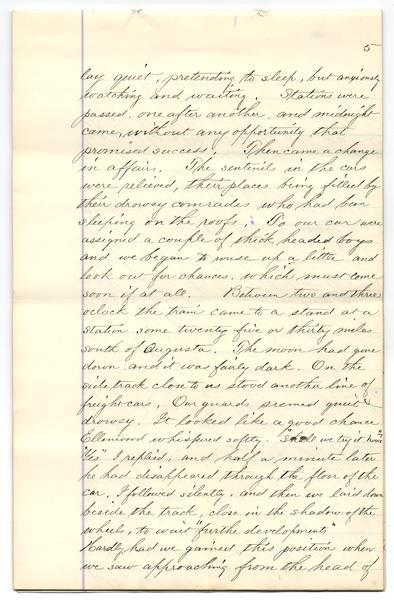 5
lay quiet, pretending to sleep, but anxiously
watching and waiting. Stations were
passed, one after another, and midnight
came, without any opportunity that
promised success. Then came a change
in affairs. The sentinels in the cars
were relieved, their places being filled by
their drowsy comrades who had been
sleeping on the roofs. To our car were
assigned a couple of thick headed boys
and we began to muse up a little and
look out for chances, which must come
soon if at all. Between two and three
oclock the train came to a stand at a
station some twenty five or thirty miles
south of Augusta. The moon had gone
down and it was fairly dark. On the
side track close to us stood another line of
freight cars. Our guards seemed quiet
drowsy. It looked like a good chance
Ellinwood whispered softly. "Shall we try it here"?
"Yes" I replied, and half a minute later
he had disappeared through the floor of the
car. I followed silently, and then we laid down
beside the track, close in the shadow of the
wheels, to wait "further developments"
Hardly had we gained this position when
we saw approaching from the head of